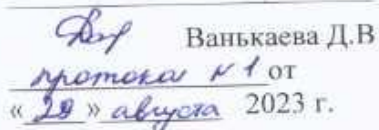 Ванькаева Д.В
протокол № 1 от
« 29 » августа 2023 г.